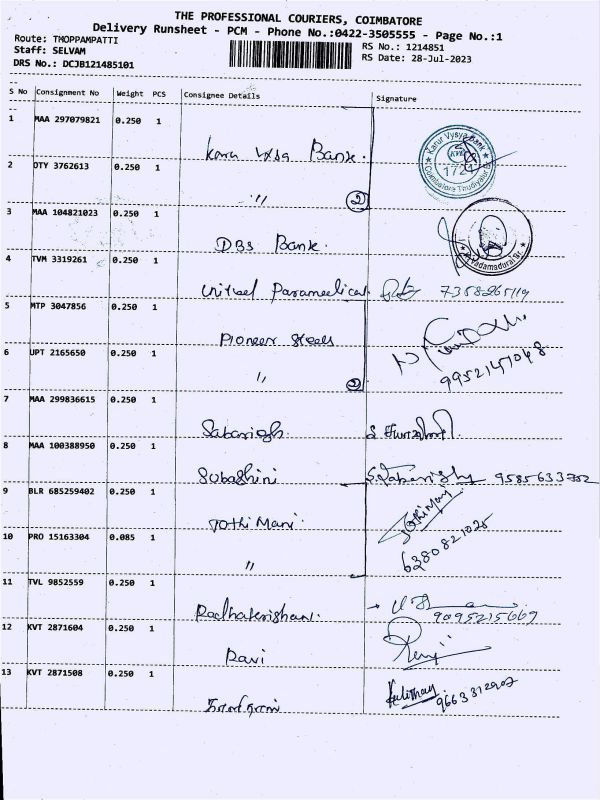 THE PROFESSIONAL COURIERS, COIMBATORE
Delivery Runsheet - PCM - Phone No.:0422-3505555 - Page No.:1
Route: THOPPAMPATTI
RS No.: 1214851
Staff: SELVAM
RS Date: 28-Jul-2023
DRS No.: DCJB121485101
S No Consignment No Weight PCS Consignee Details Signature
1 MAA 297079821 0.250 1
Bank.
Karur Vysya Bank
KVB
1721
2 DTY 3762613 0.250 1
" 2
3 MAA 104821023 0.250 1
DBS Bank.
Vadamadurai Br.
4 TVM 3319261 0.250 1
Virtual Paramedical 7358265119
5 MTP 3047856 0.250 1
Pioneer Steels
6 UPT 2165650 0.250 1
" 2 9952147048
7 MAA 299836615 0.250 1
Sabarigh
8 MAA 100388950 0.250 1
Subashini 9585633752
9 BLR 685259402 0.250 1
Jothi Mani. Jothimani
10 PRO 15163304 0.085 1
" 6380821025
11 TVL 9852559 0.250 1
Radhakrishnan. 9095215669
12 KVT 2871604 0.250 1
Ravi
13 KVT 2871508 0.250 1
9663312902